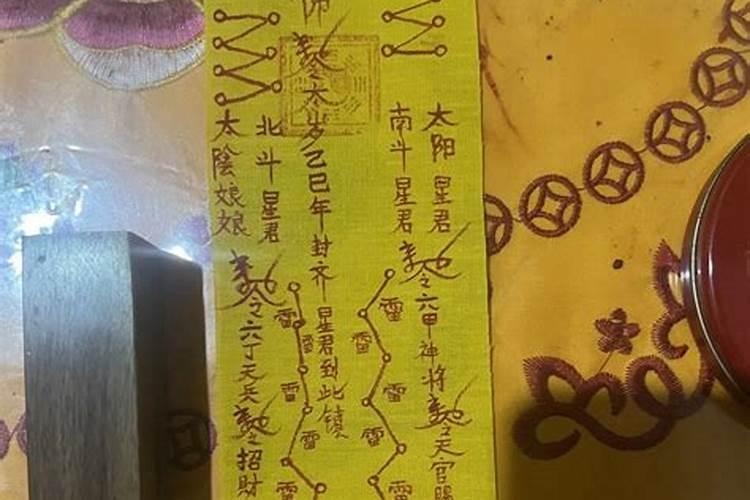 太阳星君
南斗星君
敕令六甲神将敕令天官賜
雷
雷
雷
雷
雷
帅敕令太岁己巳年封齐星君到此鎮
北斗星君
太陰娘娘
敕令六丁天兵敕令招財
雷
雷
雷
雷
雷